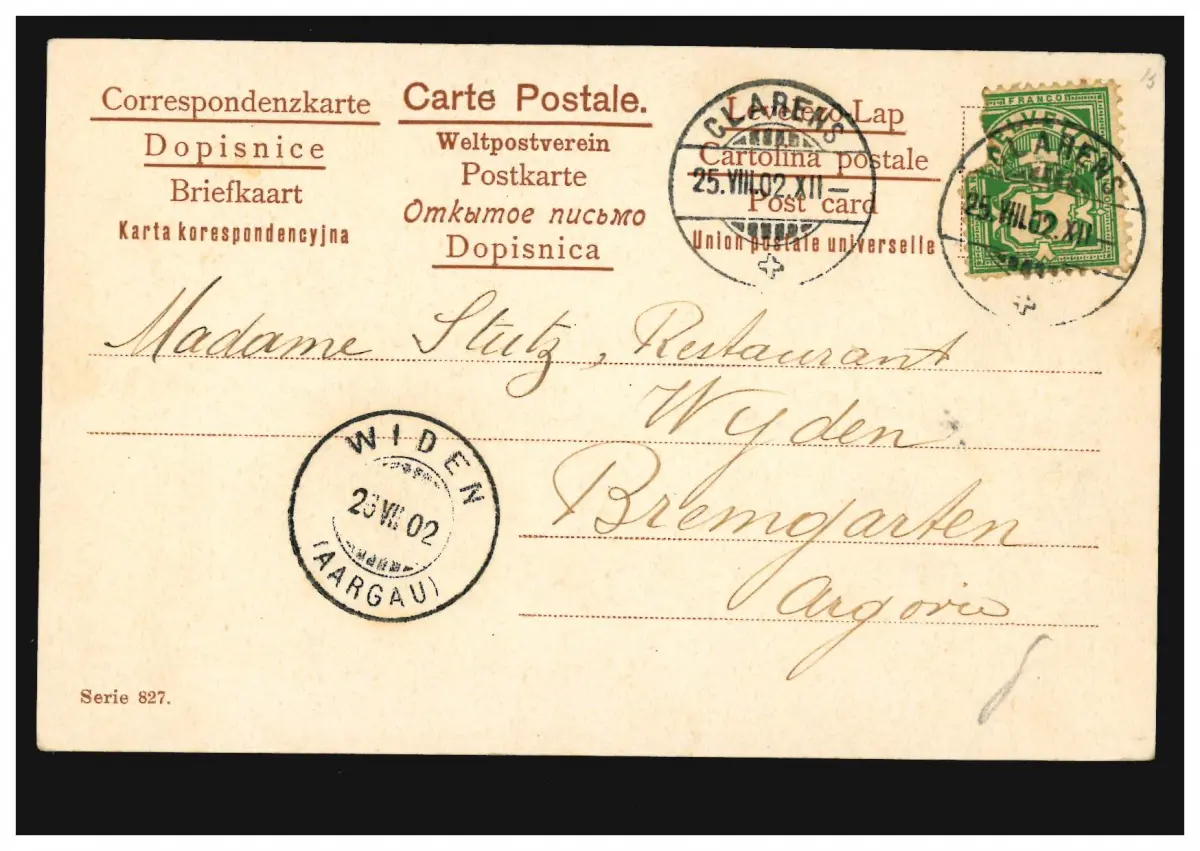 Correspondenzkarte
Dopisnice
Briefkaart
Karta korespondencyjna
Carte Postale.
Weltpostverein
Postkarte
Открытое письмо
Dopisnica
Levelező-Lap
Cartolina postale
Post card
Union postale universelle
CLARENS
25.VIII.02.XII—
FRANCO
HELVETIA
5
CLARENS
25.VIII.02.XII—
Madame Stutz, Restaurant
Wyden
Bremgarten
Argovie
WIDEN
02
(AARGAU)
Serie 827.